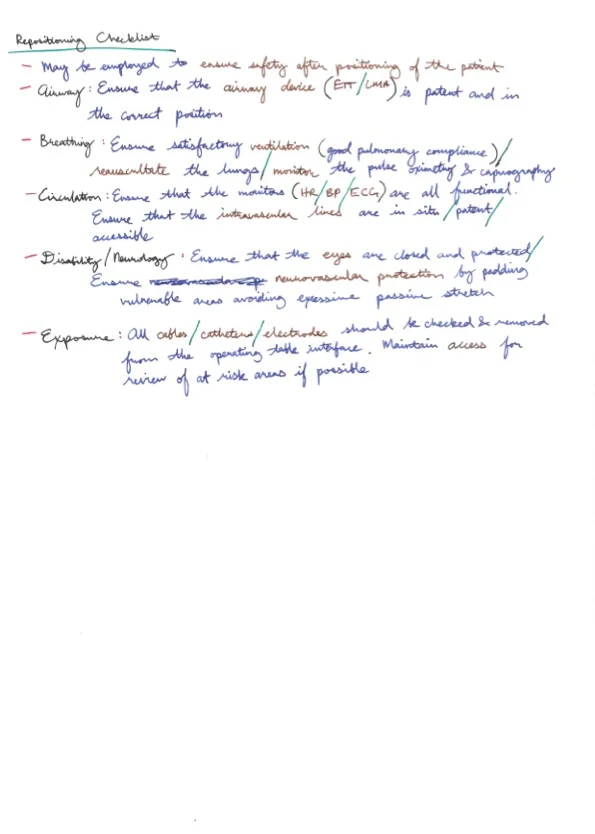 Repositioning Checklist
- May be employed to ensure safety after positioning of the patient
- Airway : Ensure that the airway device (ETT/LMA) is patent and in
the correct position
- Breathing : Ensure satisfactory ventilation (good pulmonary compliance)/
reauscultate the lungs/monitor the pulse oximetry & capnography
- Circulation : Ensure that the monitors (HR/BP/ECG) are all functional.
Ensure that the intravascular lines are in situ/patent/
accessible
- Disability/Neurology : Ensure that the eyes are closed and protected/
Ensure neurovascular protection by padding
vulnerable areas avoiding excessive passive stretch
- Exposure : All cables/catheters/electrodes should be checked & removed
from the operating table interface. Maintain access for
review of at risk areas if possible